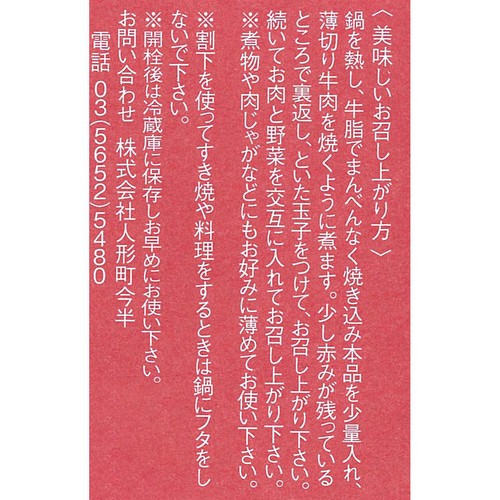 〈美味しいお召し上がり方〉
鍋を熱し、牛脂でまんべんなく焼き込み本品を少量入れ、
薄切り牛肉を焼くように煮ます。少し赤みが残っている
ところで裏返し、といた玉子をつけて、お召し上がり下さい。
続いてお肉と野菜を交互に入れてお召し上がり下さい。
※煮物や肉じゃがなどにもお好みに薄めてお使い下さい。
※割下を使ってすき焼や料理をするときは鍋にフタをし
ないで下さい。
※開栓後は冷蔵庫に保存しお早めにお使い下さい。
お問い合わせ 株式会社人形町今半
電話 03(5652)5480